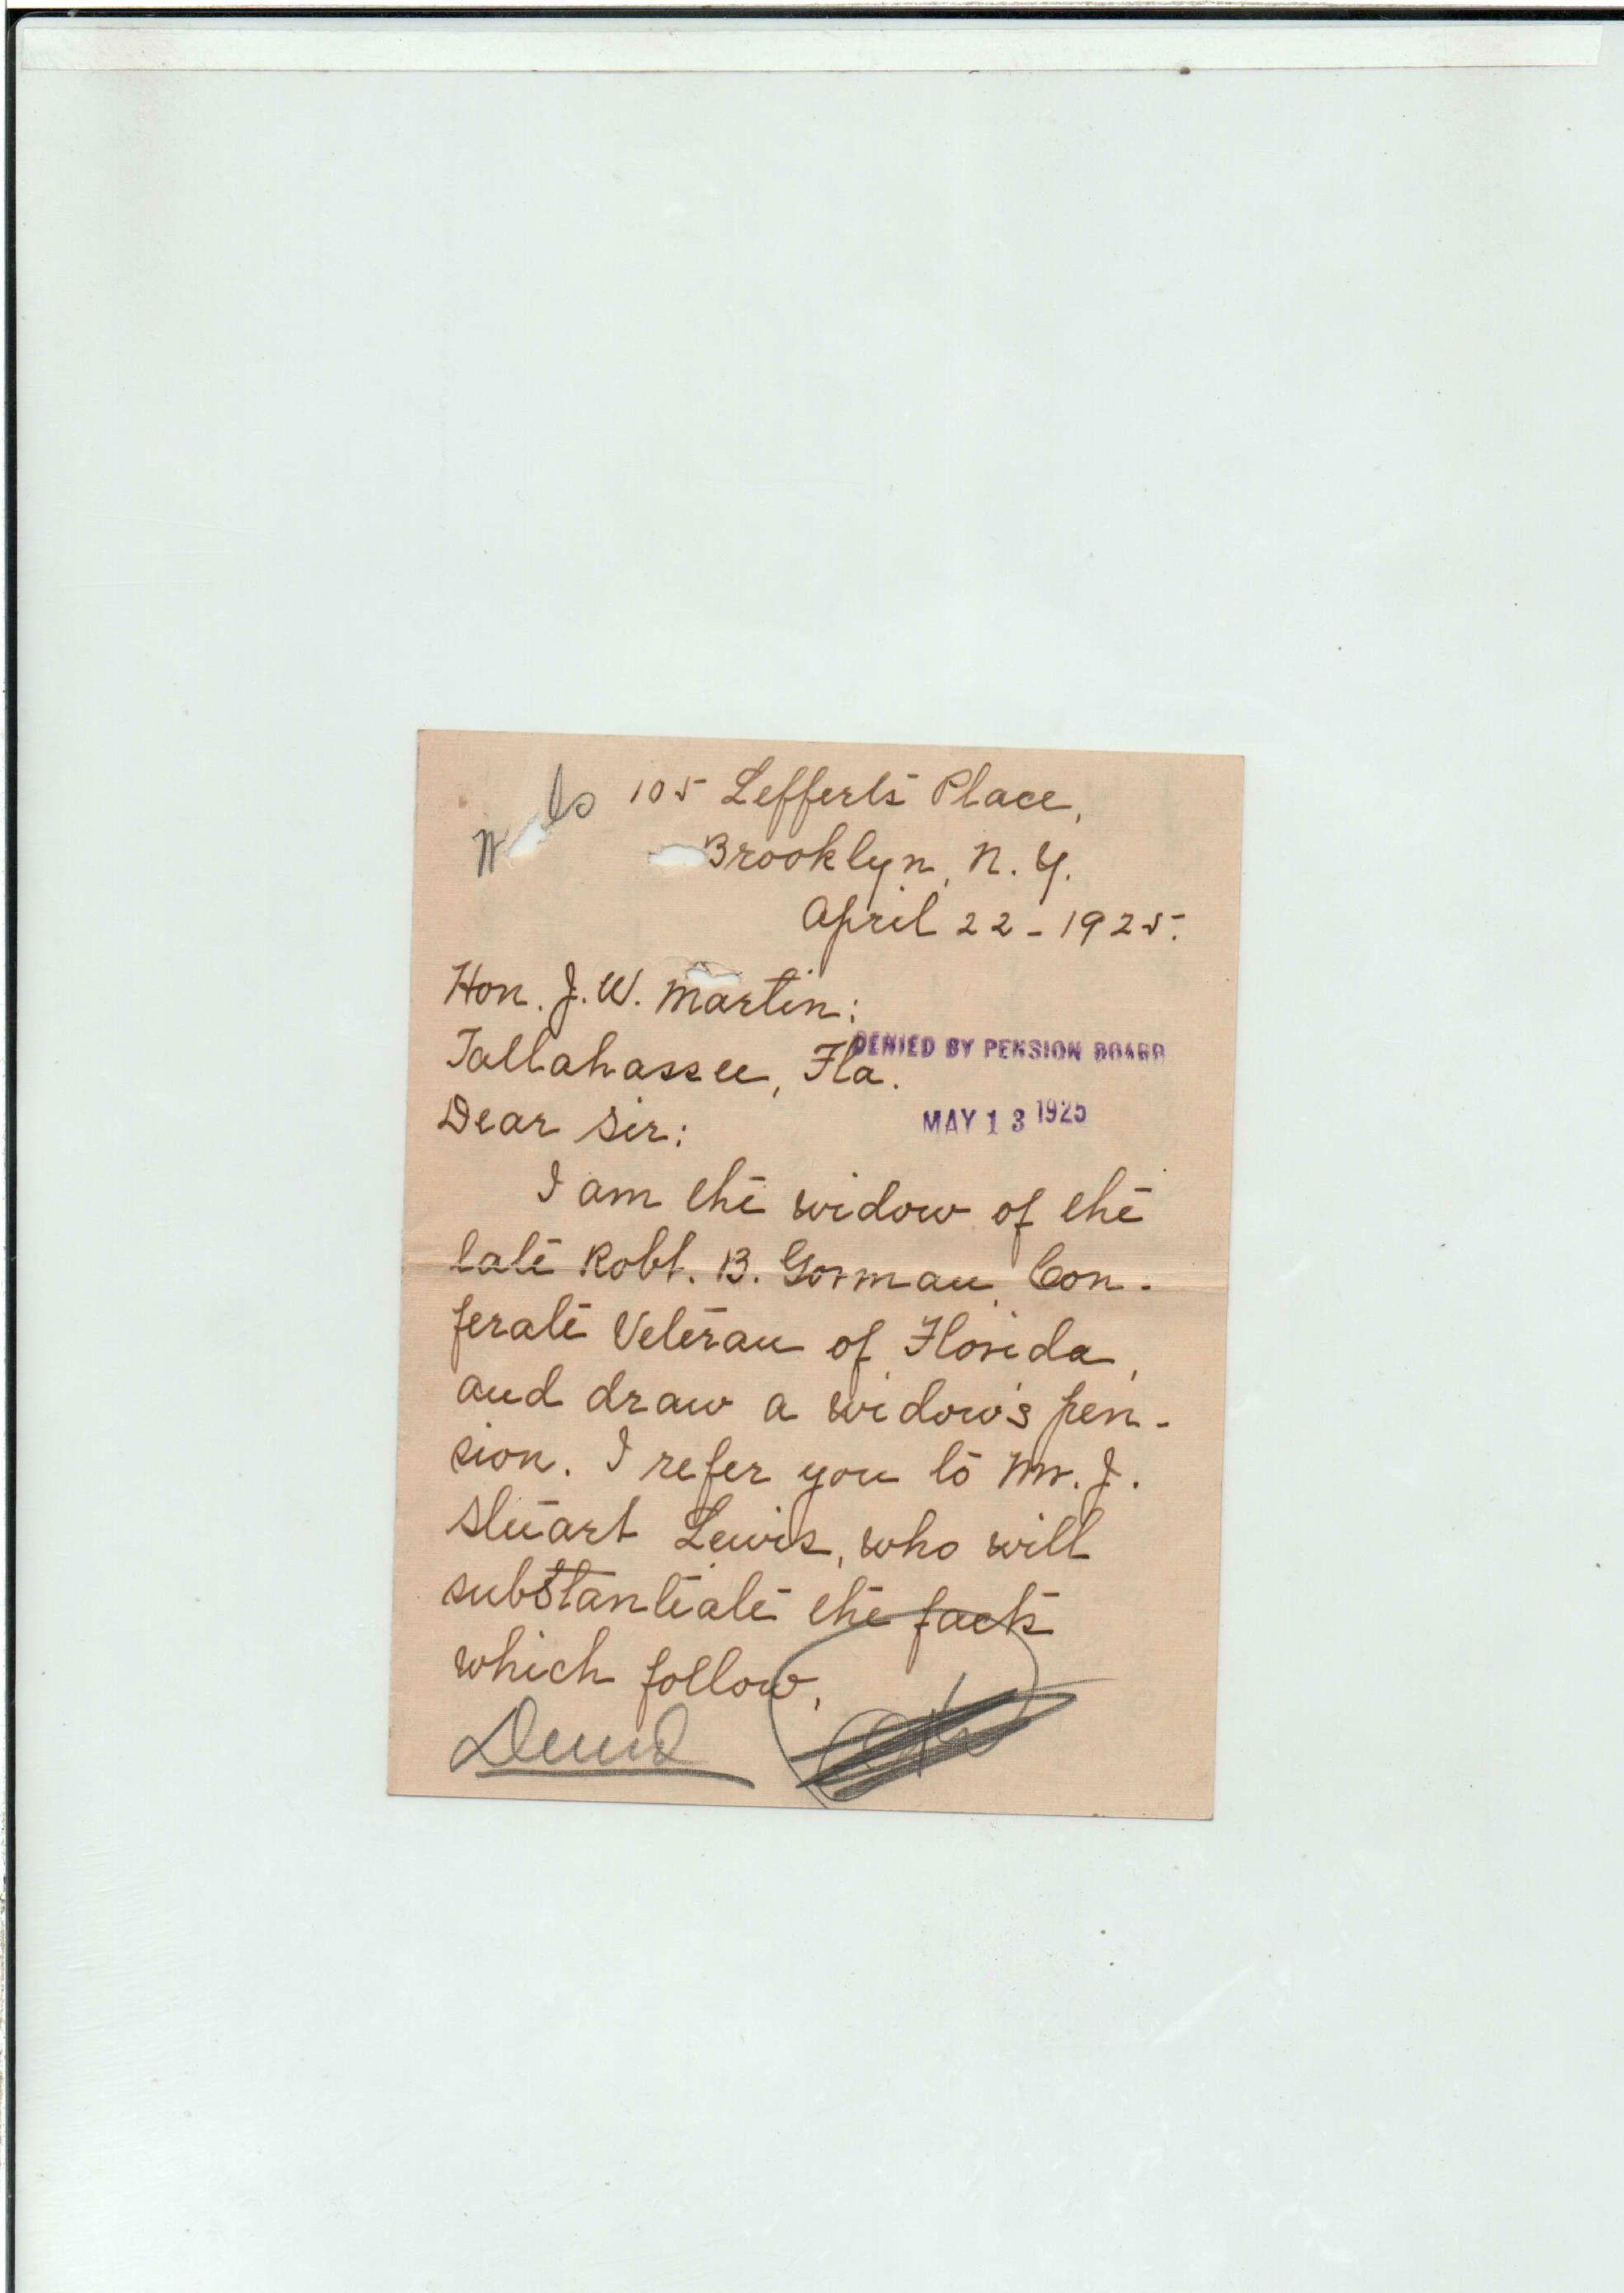 105 Lefferts Place,
Brooklyn, N. Y.
April 22 - 1925.
Hon. J. W. Martin:
Tallahassee, Fla.
DENIED BY PENSION BOARD
Dear Sir:
MAY 13 1925
I am the widow of the
late Robt. B. Gorman, Con-
ferate Veteran of Florida,
and draw a widow's pen-
sion. I refer you to Mr. J.
Stuart Lewis, who will
substantiate the facts
which follow.